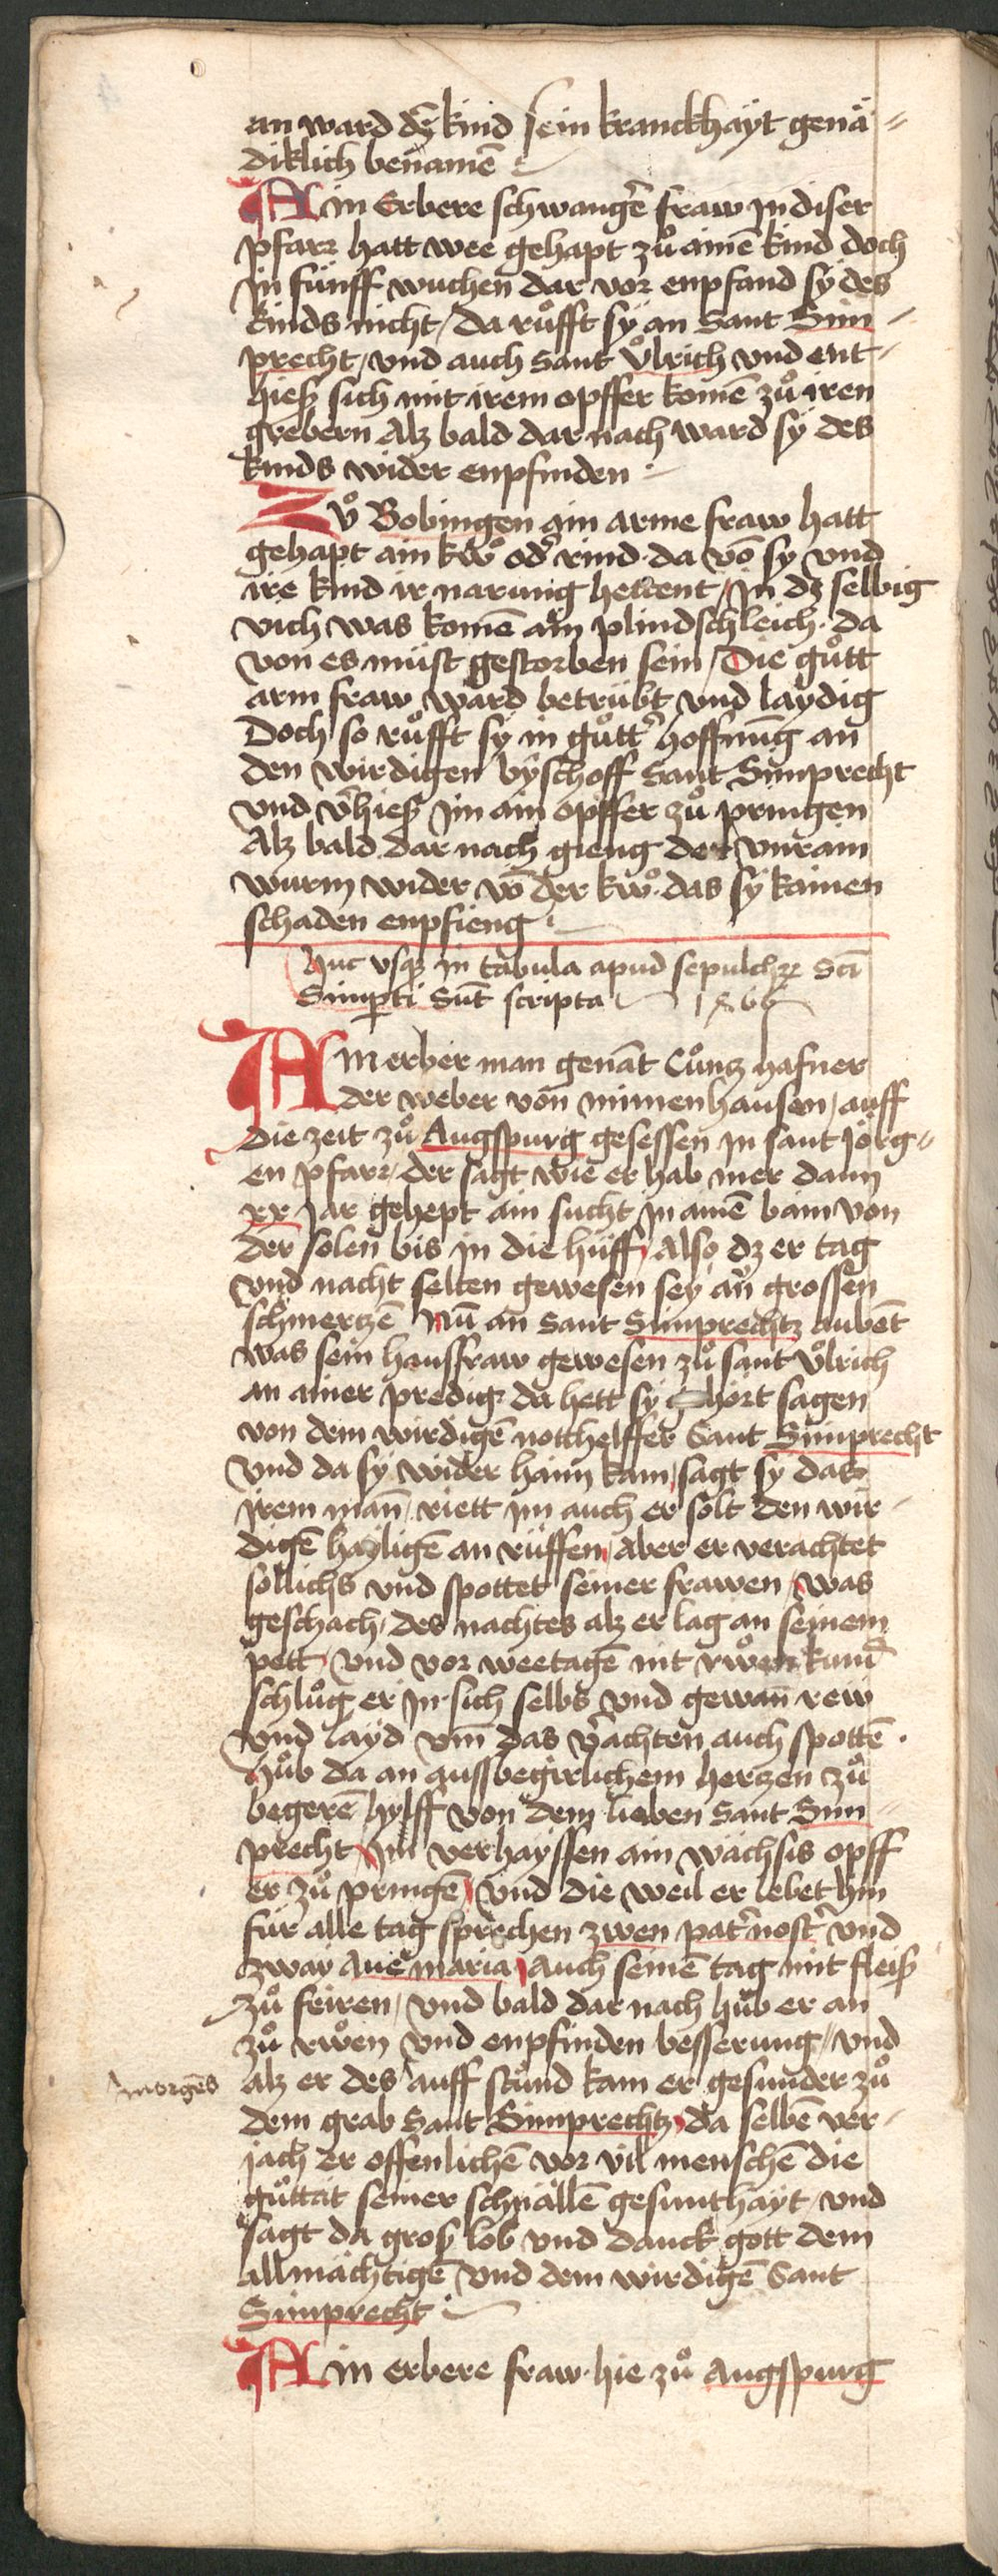 an ward dē kind sein kranckhäyt genä=
diklich benamē
Ain Erbere schwangē fraw in diser
pfarr hatt wee gehapt zů ainē kind doch
in fünff wuchen dar vor enpfand sy des
kinds nicht / da růfft sy an Sant Sim=
precht / vnd auch Sant Vͦlrich vnd ent=
hiesz sich mit irem opffer komē zů iren
grebern Alz bald dar nach ward sy des
kinds wider enpfinden
Zů Bobingen ain arme fraw hatt
gehapt ain kwͦ odʾ rind · da vō sy vnd
ire kind ir narung hettent / in dz selbig
vich was komē ain plindschleich · da
von es müst gestorben sein / Die gůtt
arm fraw ward betrübt vnd laydig
Doch so růfft sy in gůttʾ hoffnūg an
den wirdigen byschoff Sant Simprecht
vnd vʾhiesz im ain opffer zů pringen
Alz bald dar nach gieng der vnrain
wurm wider vō der kwͦ · das sy kainen
schaden enpfieng
Huc vsqz in tabula apud sepulchrʒ Scī
Simpti sūt scripta
Ain erber man genāt Cůntz hafner
der weber von mimenhausen / auff
die zeit zů Augspurg gesessen in sant Jörg=
en pfarr · der sagt wie er hab mer dann
xx jar gehept ain sucht in ainē bain von
der solen bis in die hüff / Also dz er tag
vnd nacht selten gewesen sey an grossen
schmertzē Nū an Sant Simprechtz aubēt
was sein hausfraw gewesen zů sant Vͦlrich
an ainer predig · da hett sy ghört sagen
von dem wirdigē notthelffer Sant Simprecht
Vnd da sy wider haim kam / sagt sy das
irem man / riett im auch er solt den wir=
digē hayligē an rüffen / Aber er verachtet
sollichs vnd spottet seiner frawen / was
geschach / des nachtes alz er lag an seinem
pett / vnd vor weetagē nit rwͦen kund
schlůg er in sich selbs vnd gewan rew
vnd layd vm das vʾachten auch spottē ·
Hůb da an auss begirlichem hertzen zů
begerē hylff von dem lieben Sant Sim=
precht / im verhayssen ain wächsis opff
er zů pringē / Vnd die weil er lebet hin
für alle tag sprechen zwen patʾnostʾ vnd
zway Aue maria / Auch seinē tag mit fleisz
zů feiren / vnd bald dar nach hůb er an
zů rwͦen vnd enpfinden besserung / vnd
morgēs
alz er des ^ auff stůnd kam er gesunder zů
dem grab Sant Simprechtz / da selbē ver=
jach er offenlichē vor vil menschē die
gůttät seiner schnällē gesunthäyt / vnd
sagt da grosz lob vnd danck gott dem
allmächtigē vnd dem wirdigē Sant
Simprecht
Ain erbere fraw · hie zů Augspurg